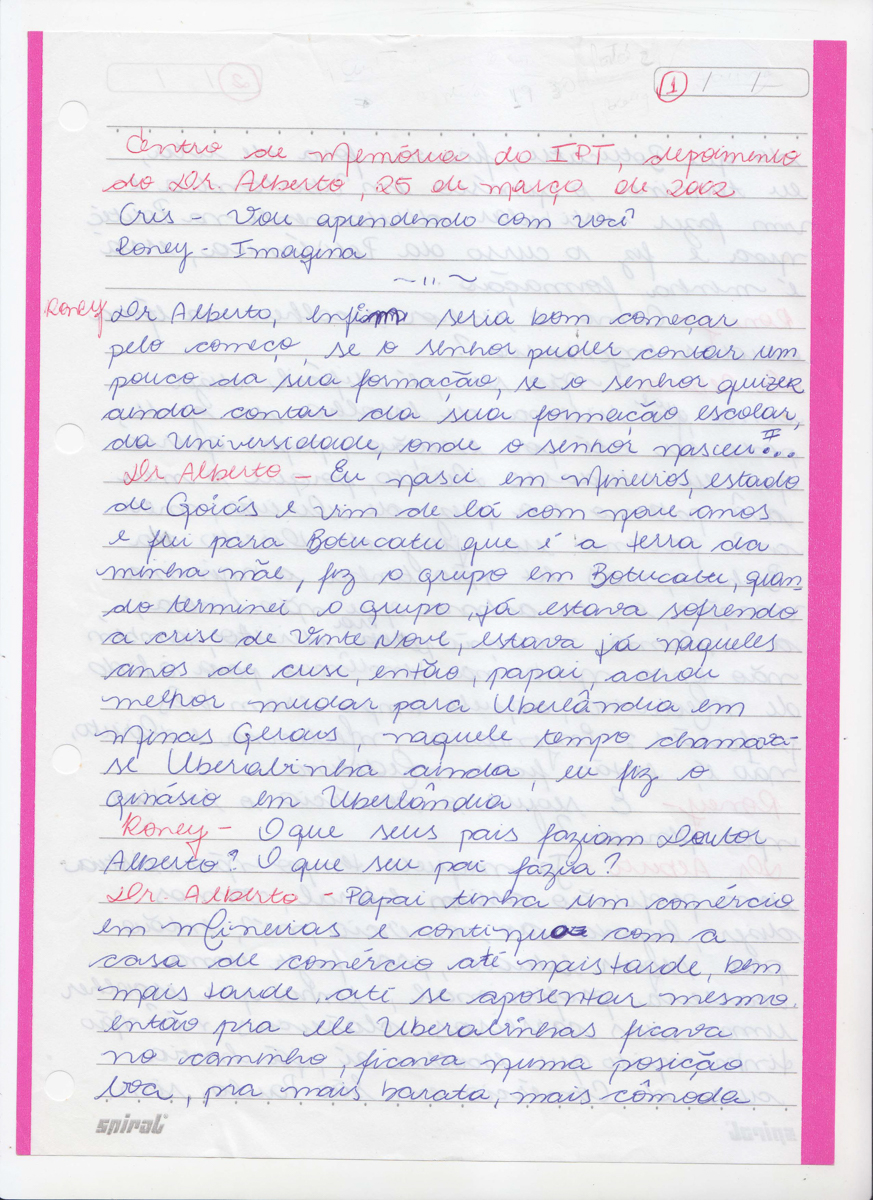 1 / /
Centro de Memória do IPT, depoimento
do Dr. Alberto, 25 de março de 2002
Cris - Vou aprendendo com você
Roney - Imagina
~ 11 ~
Roney Dr Alberto, enfim seria bom começar
pelo começo, se o senhor puder contar um
pouco da sua formação, se o senhor quizer
ainda contar da sua formação escolar,
da Universidade, onde o senhor nasceu!!...
Dr Alberto - Eu nasci em Mineiros, estado
de Goiás e vim de lá com nove anos
e fui para Botucatu que é a terra da
minha mãe, fiz o grupo em Botucatu, quan-
do terminei o grupo, já estava sofrendo
a crise de Vinte Nove, estava já naqueles
anos de crise, então, papai, achou
melhor mudar para Uberlândia em
Minas Gerais, naquele tempo chamava-
se Uberabinha ainda, eu fiz o
ginásio em Uberlândia
Roney - O que seus pais faziam Doutor
Alberto? O que seu pai fazia?
Dr. Alberto - Papai tinha um comércio
em Mineiros e continuo com a
casa de comércio até mais tarde, bem
mais tarde, até se aposentar mesmo.
então pra ele Uberabinhas ficava
no caminho, ficava numa posição
boa, pra mais barata, mais cômoda
spiral